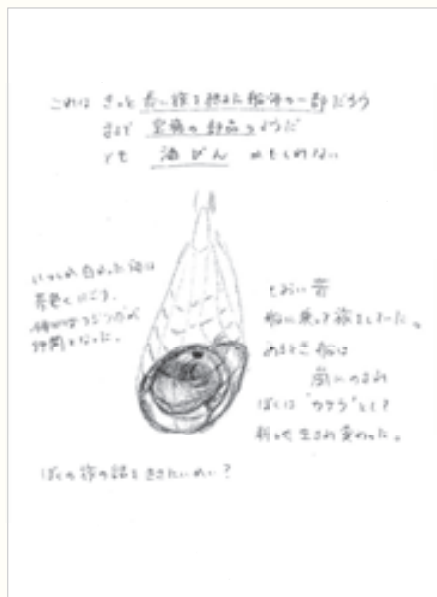 これは きっと 長い旅を終えた船体の一部だろう
まるで 楽器の部品のようだ
でも 酒びん かもしれない
いつしか白かった泡は
茶色くにごり、
仲間となった。
とおい昔
船に乗って旅をしていた。
あるとき船は
嵐にのまれ
ぼくは "カケラ" として
新しく生まれ変わった。
ぼくの旅の話をききたいかい?